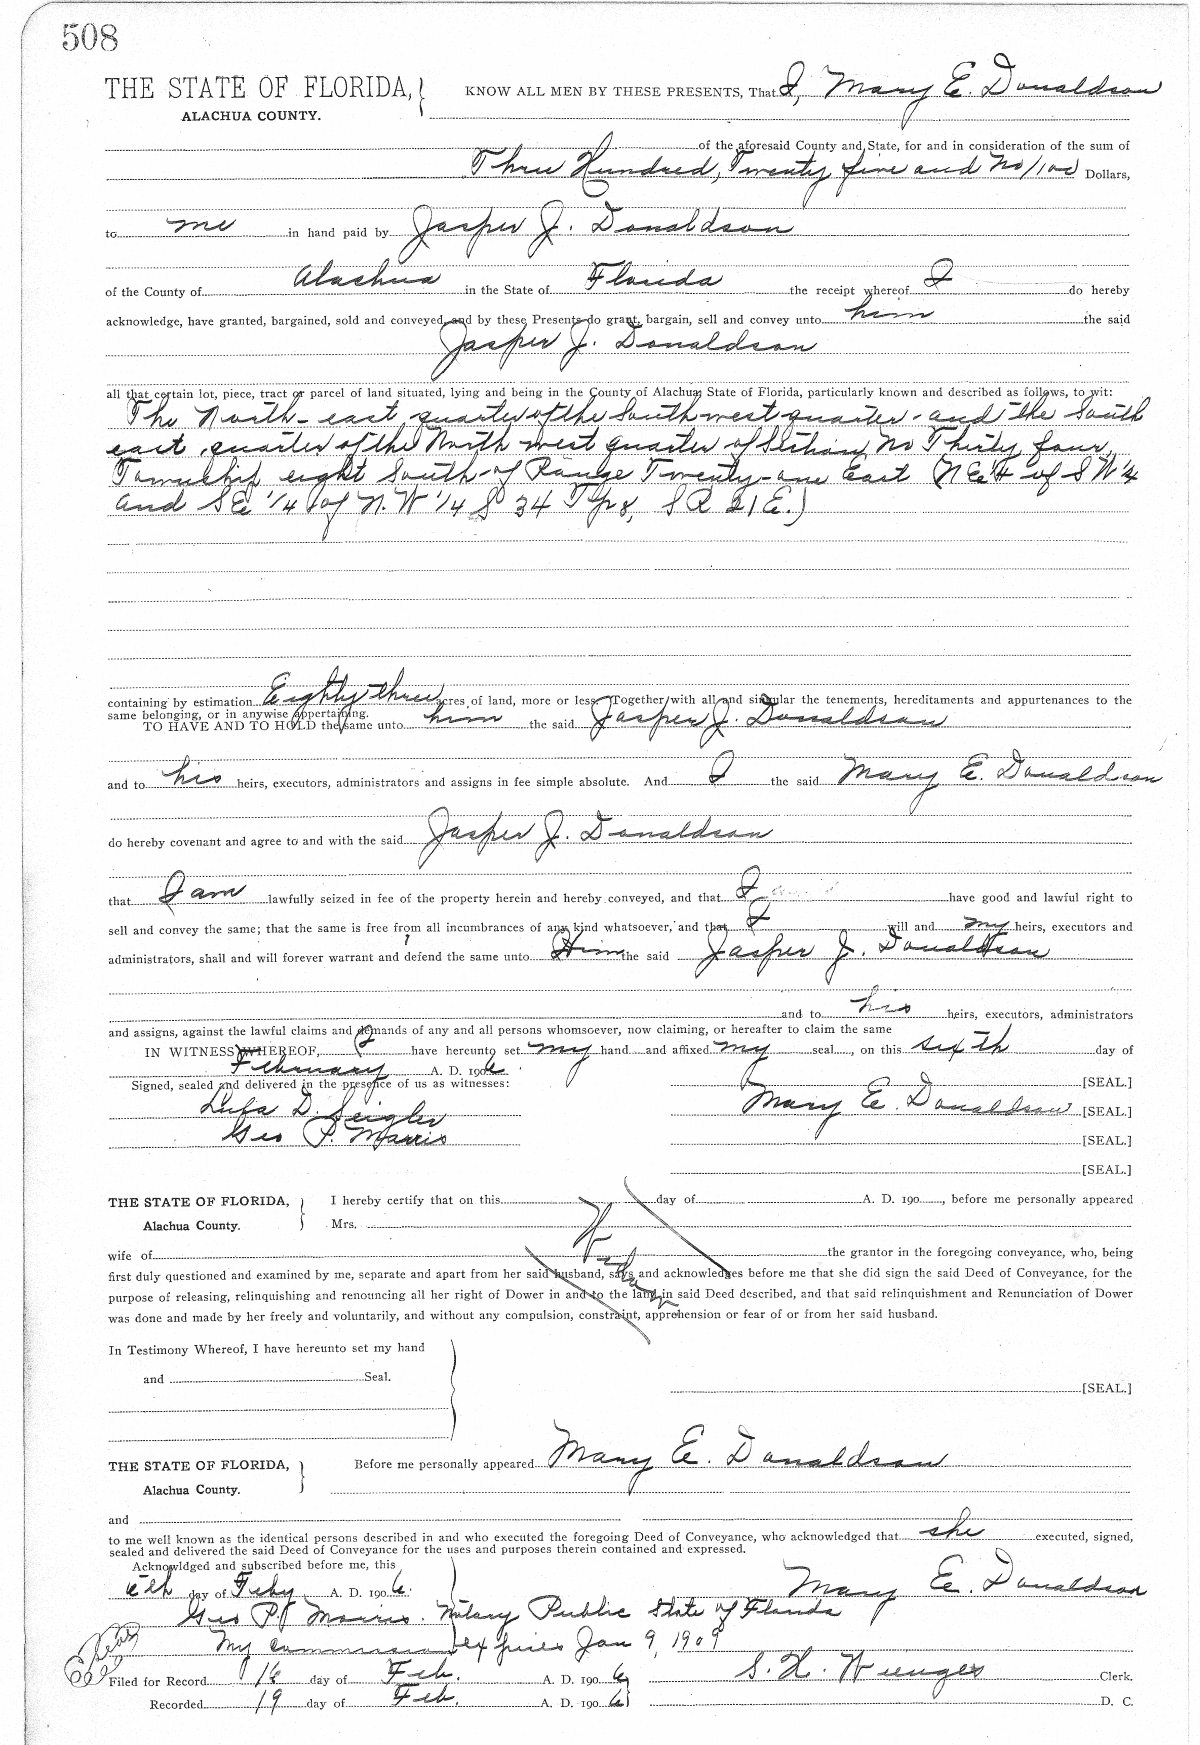 508
THE STATE OF FLORIDA, KNOW ALL MEN BY THESE PRESENTS, That I, Mary E. Donaldson
ALACHUA COUNTY.
of the aforesaid County and State, for and in consideration of the sum of
Three Hundred, Twenty five and No/100 Dollars,
to me in hand paid by Jasper J. Donaldson
of the County of Alachua in the State of Florida the receipt whereof I do hereby
acknowledge, have granted, bargained, sold and conveyed, and by these Presents do grant, bargain, sell and convey unto him the said
Jasper J. Donaldson
all that certain lot, piece, tract or parcel of land situated, lying and being in the County of Alachua State of Florida, particularly known and described as follows, to wit:
The North-east quarter of the South west quarter - and the South
east quarter of the North west quarter of Section No Thirty four,
Township eight South of Range Twenty-one East (N E 1/4 of S W 1/4
and S E 1/4 of N. W 1/4 S 34 Tp 8, S R 21 E.)
containing by estimation Eighty three acres of land, more or less. Together with all and singular the tenements, hereditaments and appurtenances to the
same belonging, or in anywise appertaining.
TO HAVE AND TO HOLD the same unto him the said Jasper J. Donaldson
and to his heirs, executors, administrators and assigns in fee simple absolute. And I the said Mary E. Donaldson
do hereby covenant and agree to and with the said Jasper J. Donaldson
that I am lawfully seized in fee of the property herein and hereby conveyed, and that I have good and lawful right to
sell and convey the same; that the same is free from all incumbrances of any kind whatsoever, and that I will and my heirs, executors and
administrators, shall and will forever warrant and defend the same unto Him the said Jasper J. Donaldson
and to his heirs, executors, administrators
and assigns, against the lawful claims and demands of any and all persons whomsoever, now claiming, or hereafter to claim the same
IN WITNESS WHEREOF, I have hereunto set my hand and affixed my seal, on this sixth day of
February A. D. 1906
Signed, sealed and delivered in the presence of us as witnesses: [SEAL.]
D. Seigler Mary E. Donaldson [SEAL.]
Geo P. Morris [SEAL.]
[SEAL.]
THE STATE OF FLORIDA, I hereby certify that on this day of A. D. 190 , before me personally appeared
Alachua County. Mrs.
wife of the grantor in the foregoing conveyance, who, being
first duly questioned and examined by me, separate and apart from her said husband, says and acknowledges before me that she did sign the said Deed of Conveyance, for the
purpose of releasing, relinquishing and renouncing all her right of Dower in and to the land in said Deed described, and that said relinquishment and Renunciation of Dower
was done and made by her freely and voluntarily, and without any compulsion, constraint, apprehension or fear of or from her said husband.
In Testimony Whereof, I have hereunto set my hand
and Seal.
[SEAL.]
THE STATE OF FLORIDA, Before me personally appeared Mary E. Donaldson
Alachua County.
and
to me well known as the identical persons described in and who executed the foregoing Deed of Conveyance, who acknowledged that she executed, signed,
sealed and delivered the said Deed of Conveyance for the uses and purposes therein contained and expressed.
Acknowldged and subscribed before me, this
6th day of Feby A. D. 1906. Mary E. Donaldson
Geo P. Morris. Notary Public State of Florida
My commission expires Jan 9, 1909
Filed for Record 16 day of Feb. A. D. 1906 S. H. Wienges Clerk.
Recorded 19 day of Feb. A. D. 1906 D. C.